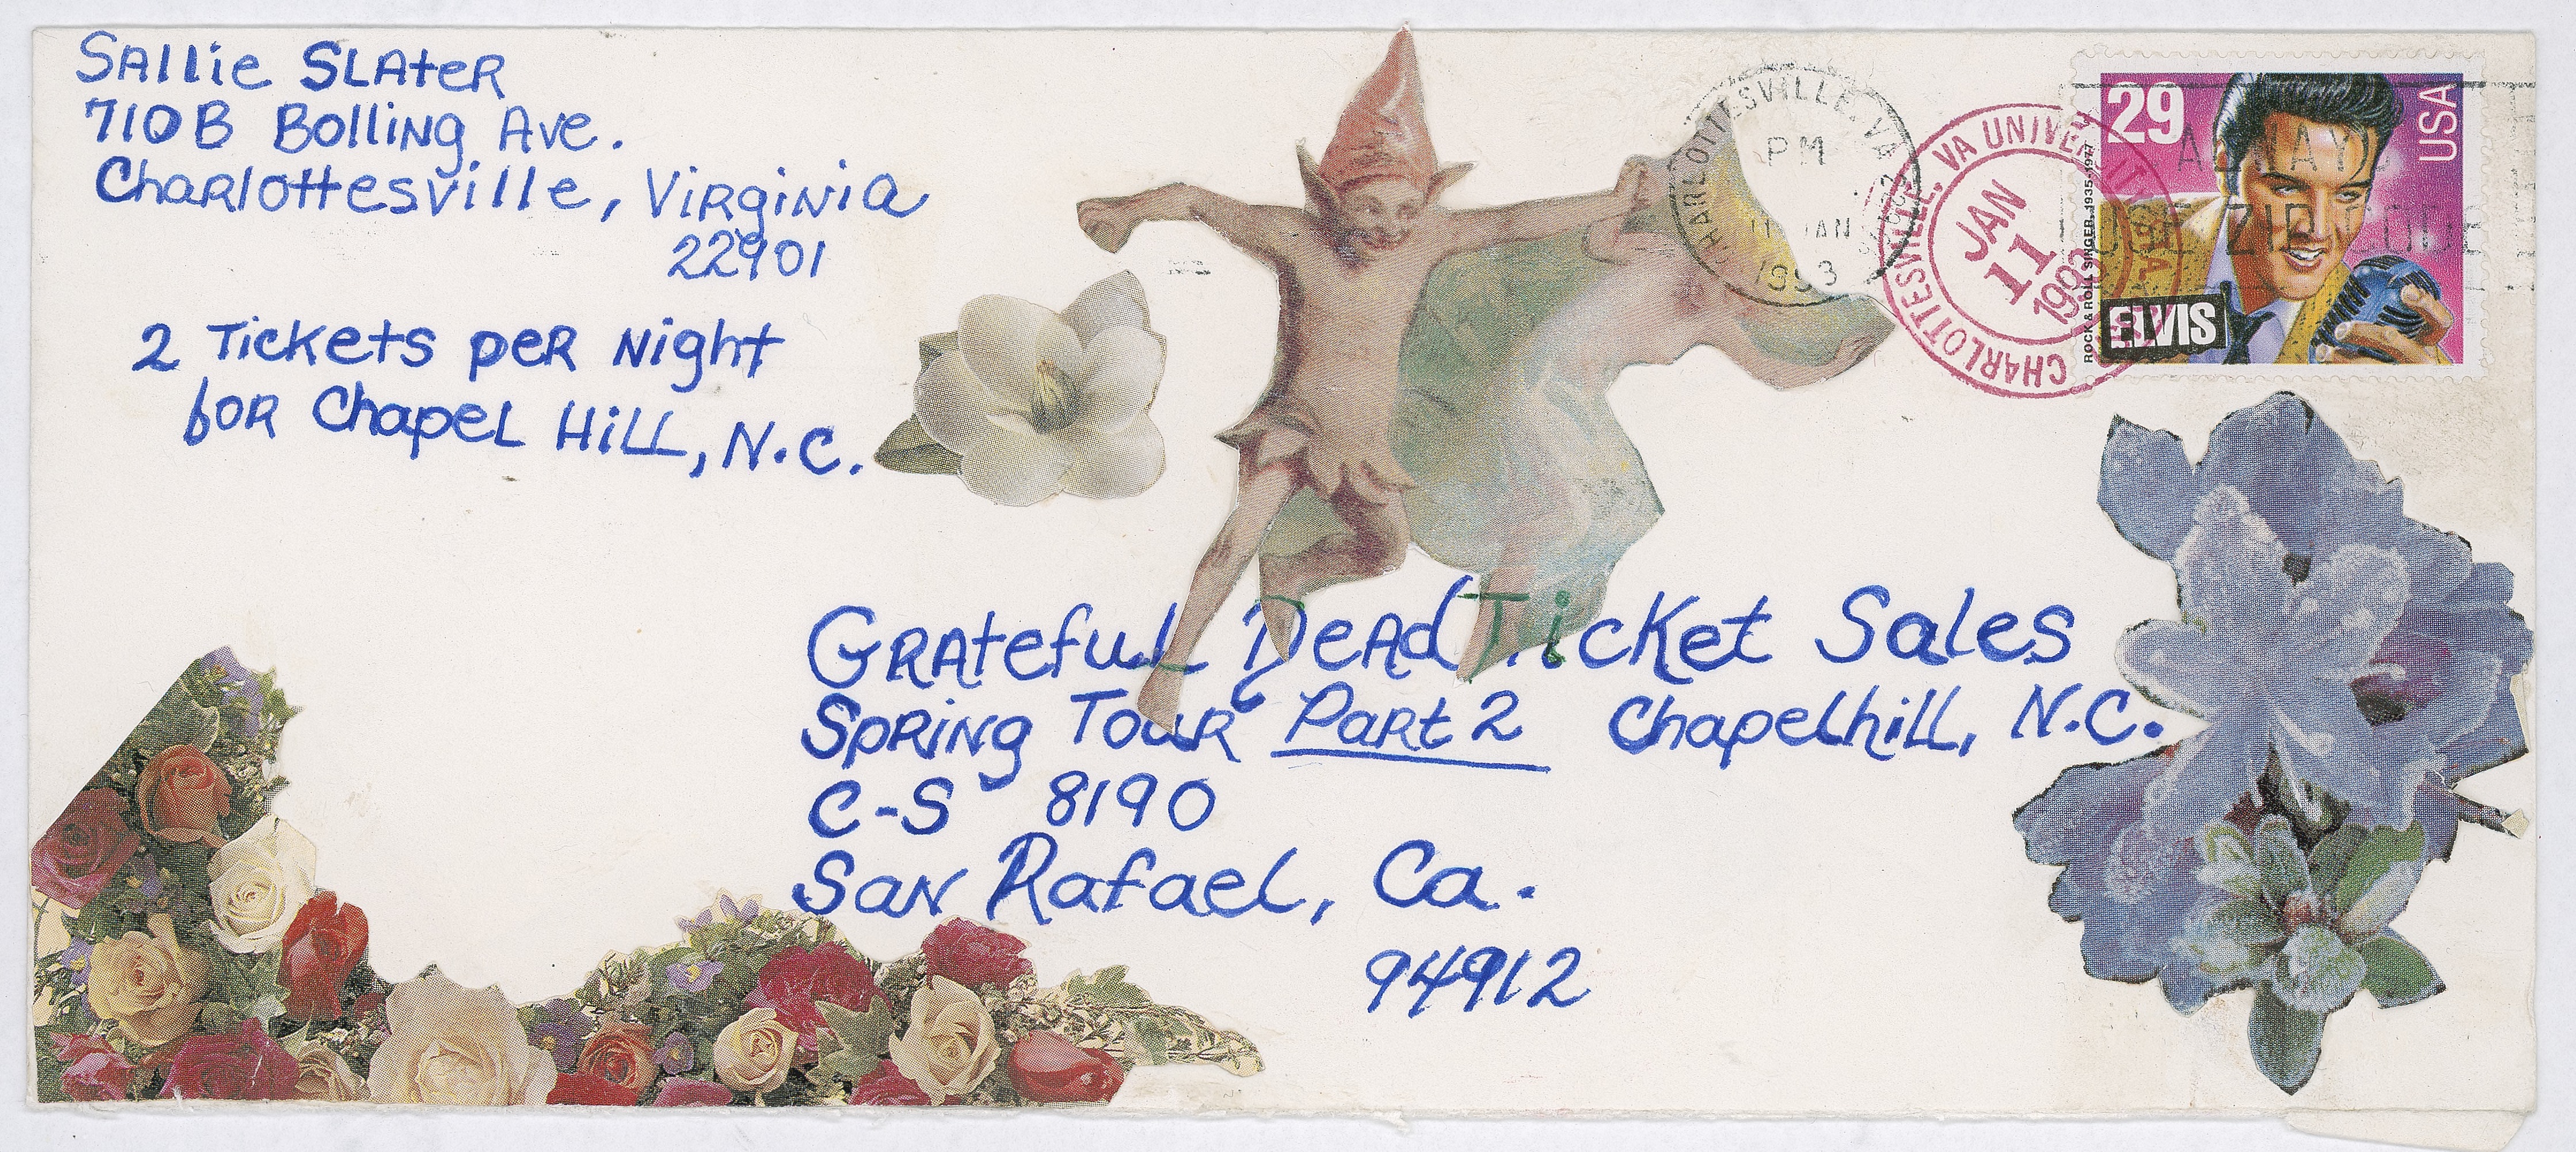 Sallie Slater
710B Bolling Ave.
Charlottesville, Virginia
22901
2 Tickets per Night
for Chapel Hill, N.C.
CHARLOTTESVILLE, VA
PM
11 JAN
1993
CHARLOTTESVILLE, VA UNIVERSITY
JAN
11
1993
29
USA
ELVIS
ROCK & ROLL SINGER, 1935-1977
ALWAYS
USE ZIP CODE
Grateful Dead Ticket Sales
Spring Tour Part 2 Chapelhill, N.C.
C-S 8190
San Rafael, Ca.
94912